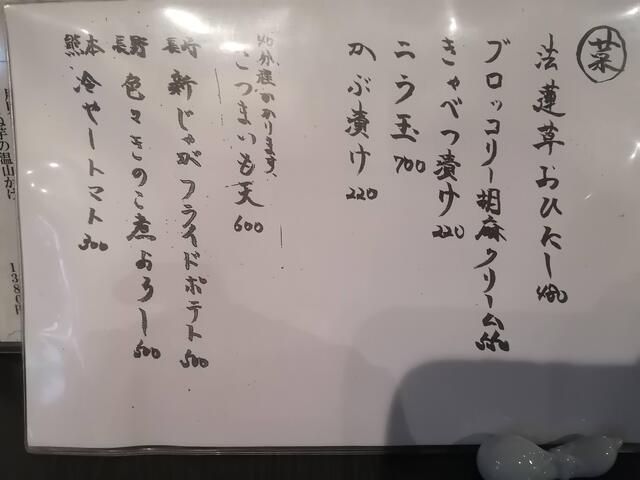 菜
法蓮草おひたし 480
ブロッコリー胡麻クリーム 550
きゃべつ漬け 220
ニラ玉 700
かぶ漬け 220
20分程かかります、
さつまいも天 600
長崎 新じゃがフライドポテト 500
長野 色々きのこ煮おろし 500
熊本 冷やしトマト 300
の温山かけ